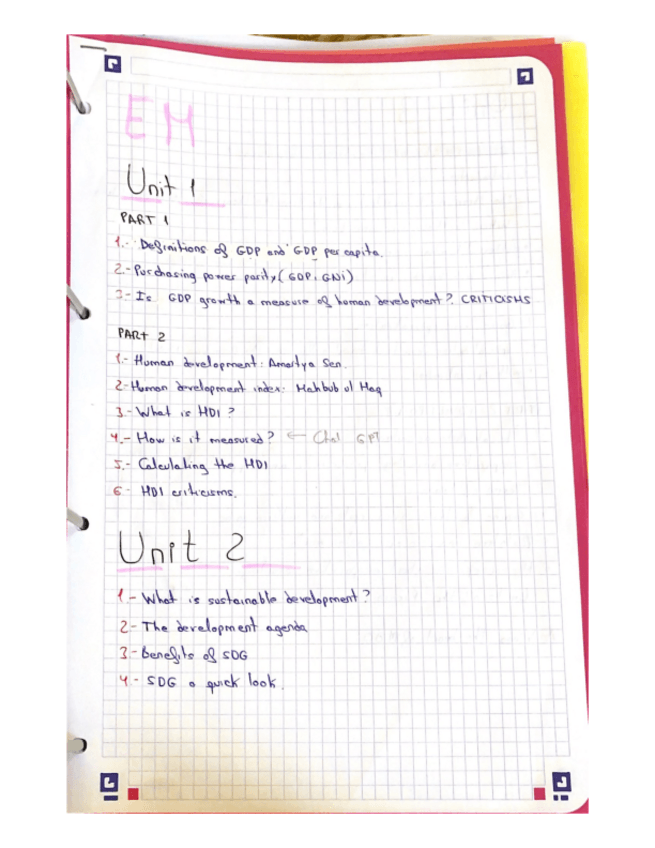 EM
Unit 1
PART 1
1.- Definitions of GDP and GDP per capita.
2.- Purchasing power parity (GDP, GNI)
3.- Is GDP growth a measure of human development? CRITICISMS
PART 2
1.- Human development: Amartya Sen.
2- Human development index: Mahbub ul Haq
3.- What is HDI?
4.- How is it measured? ← Chat GPT
5.- Calculating the HDI
6.- HDI criticisms.
Unit 2
1.- What is sustainable development?
2- The development agenda
3- Benefits of SDG
4.- SDG a quick look.